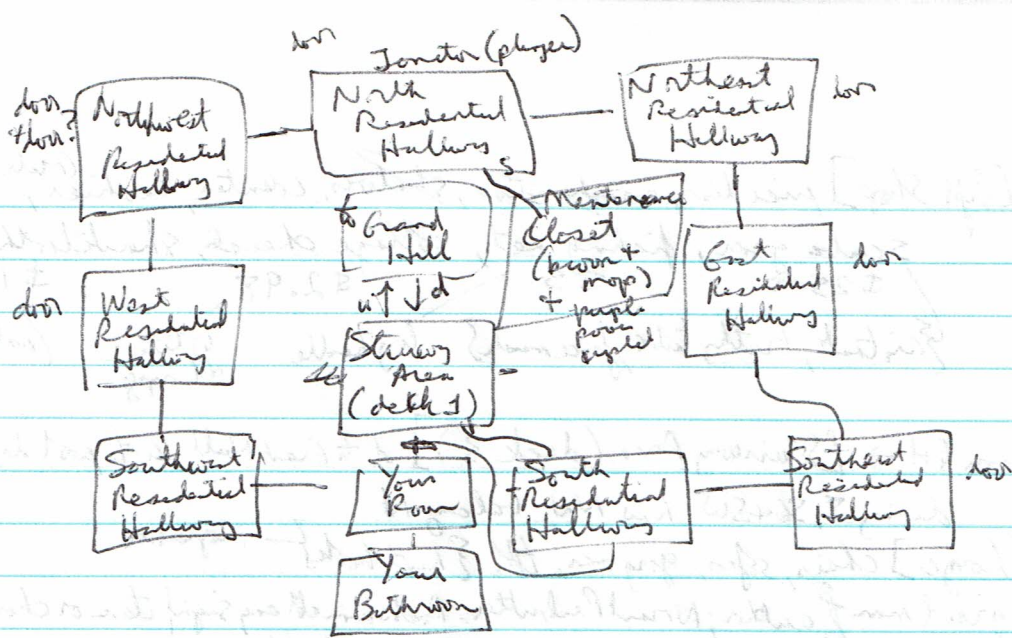 door
Janitor (plunger)
door
+ door?
Northwest
Residential
Hallway
North
Residential
Hallway
S
Northeast
Residential
Hallway
door
to Grand
Hall
u d
Maintenance
Closet
(broom +
mop)
+ purple
poem
East
Residential
Hallway
door
door
West
Residential
Hallway
Stairway
Area
(deck 1)
Southwest
Residential
Hallway
Your
Room
South
Residential
Hallway
Southeast
Residential
Hallway
door
Your
Bathroom